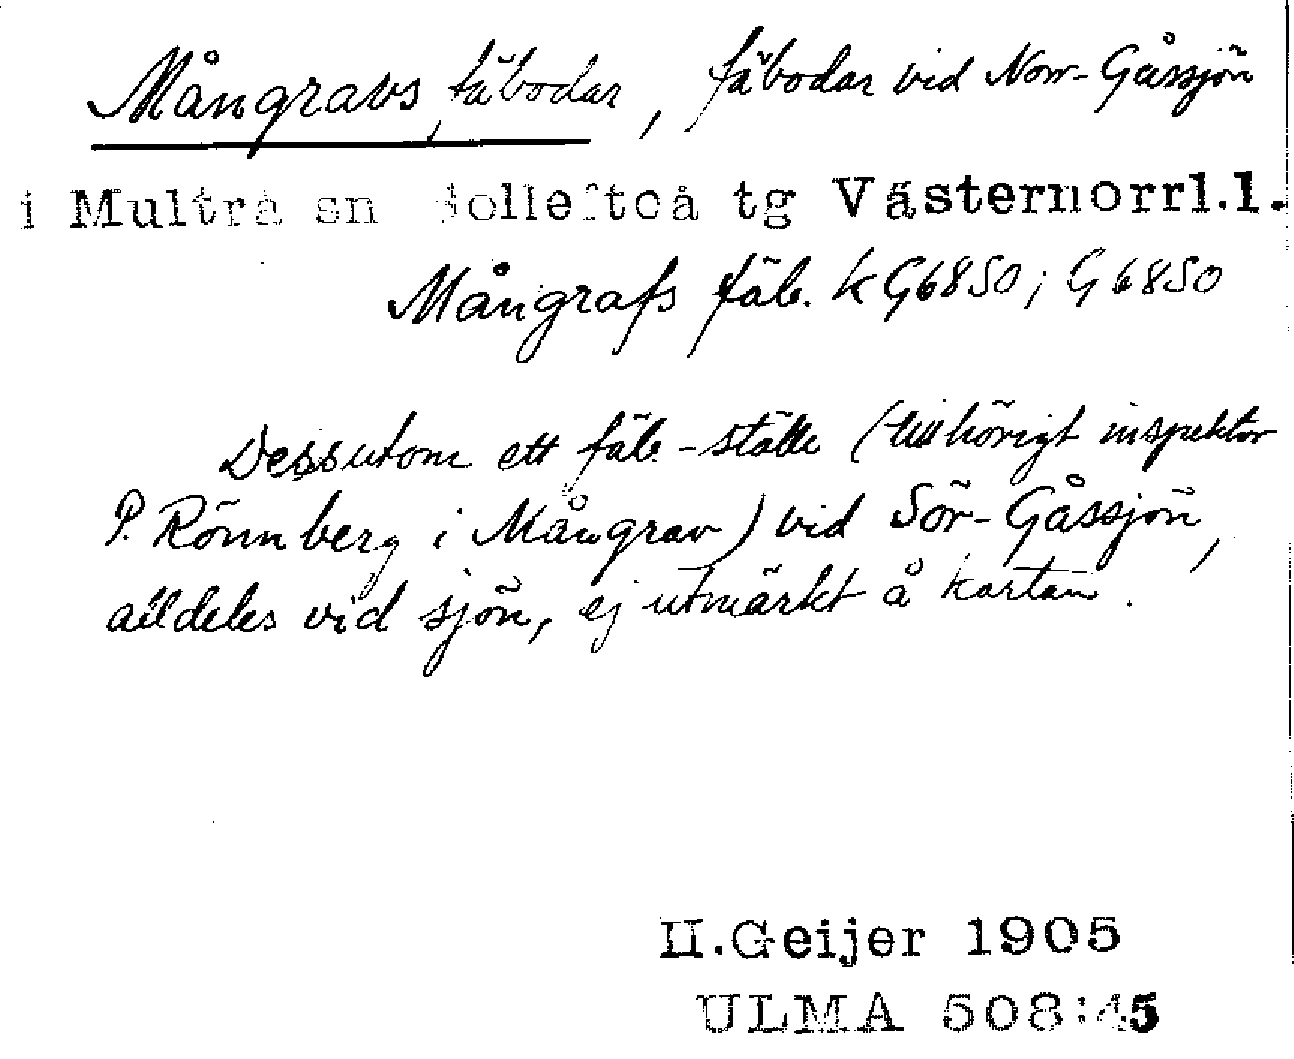 Mångravs fäbodar, fäbodar vid Norr-Gåssjön
i Multrå sn Sollefteå tg Västernorrl.l.
Mångrafs fäb. k G6850; G6850
Dessutom ett fäb.-ställe (tillhörigt inspektor
P. Rönnberg i Mångrav) vid Sör-Gåssjön,
alldeles vid sjön, ej utmärkt å kartan.
H.Geijer 1905
ULMA 508:45